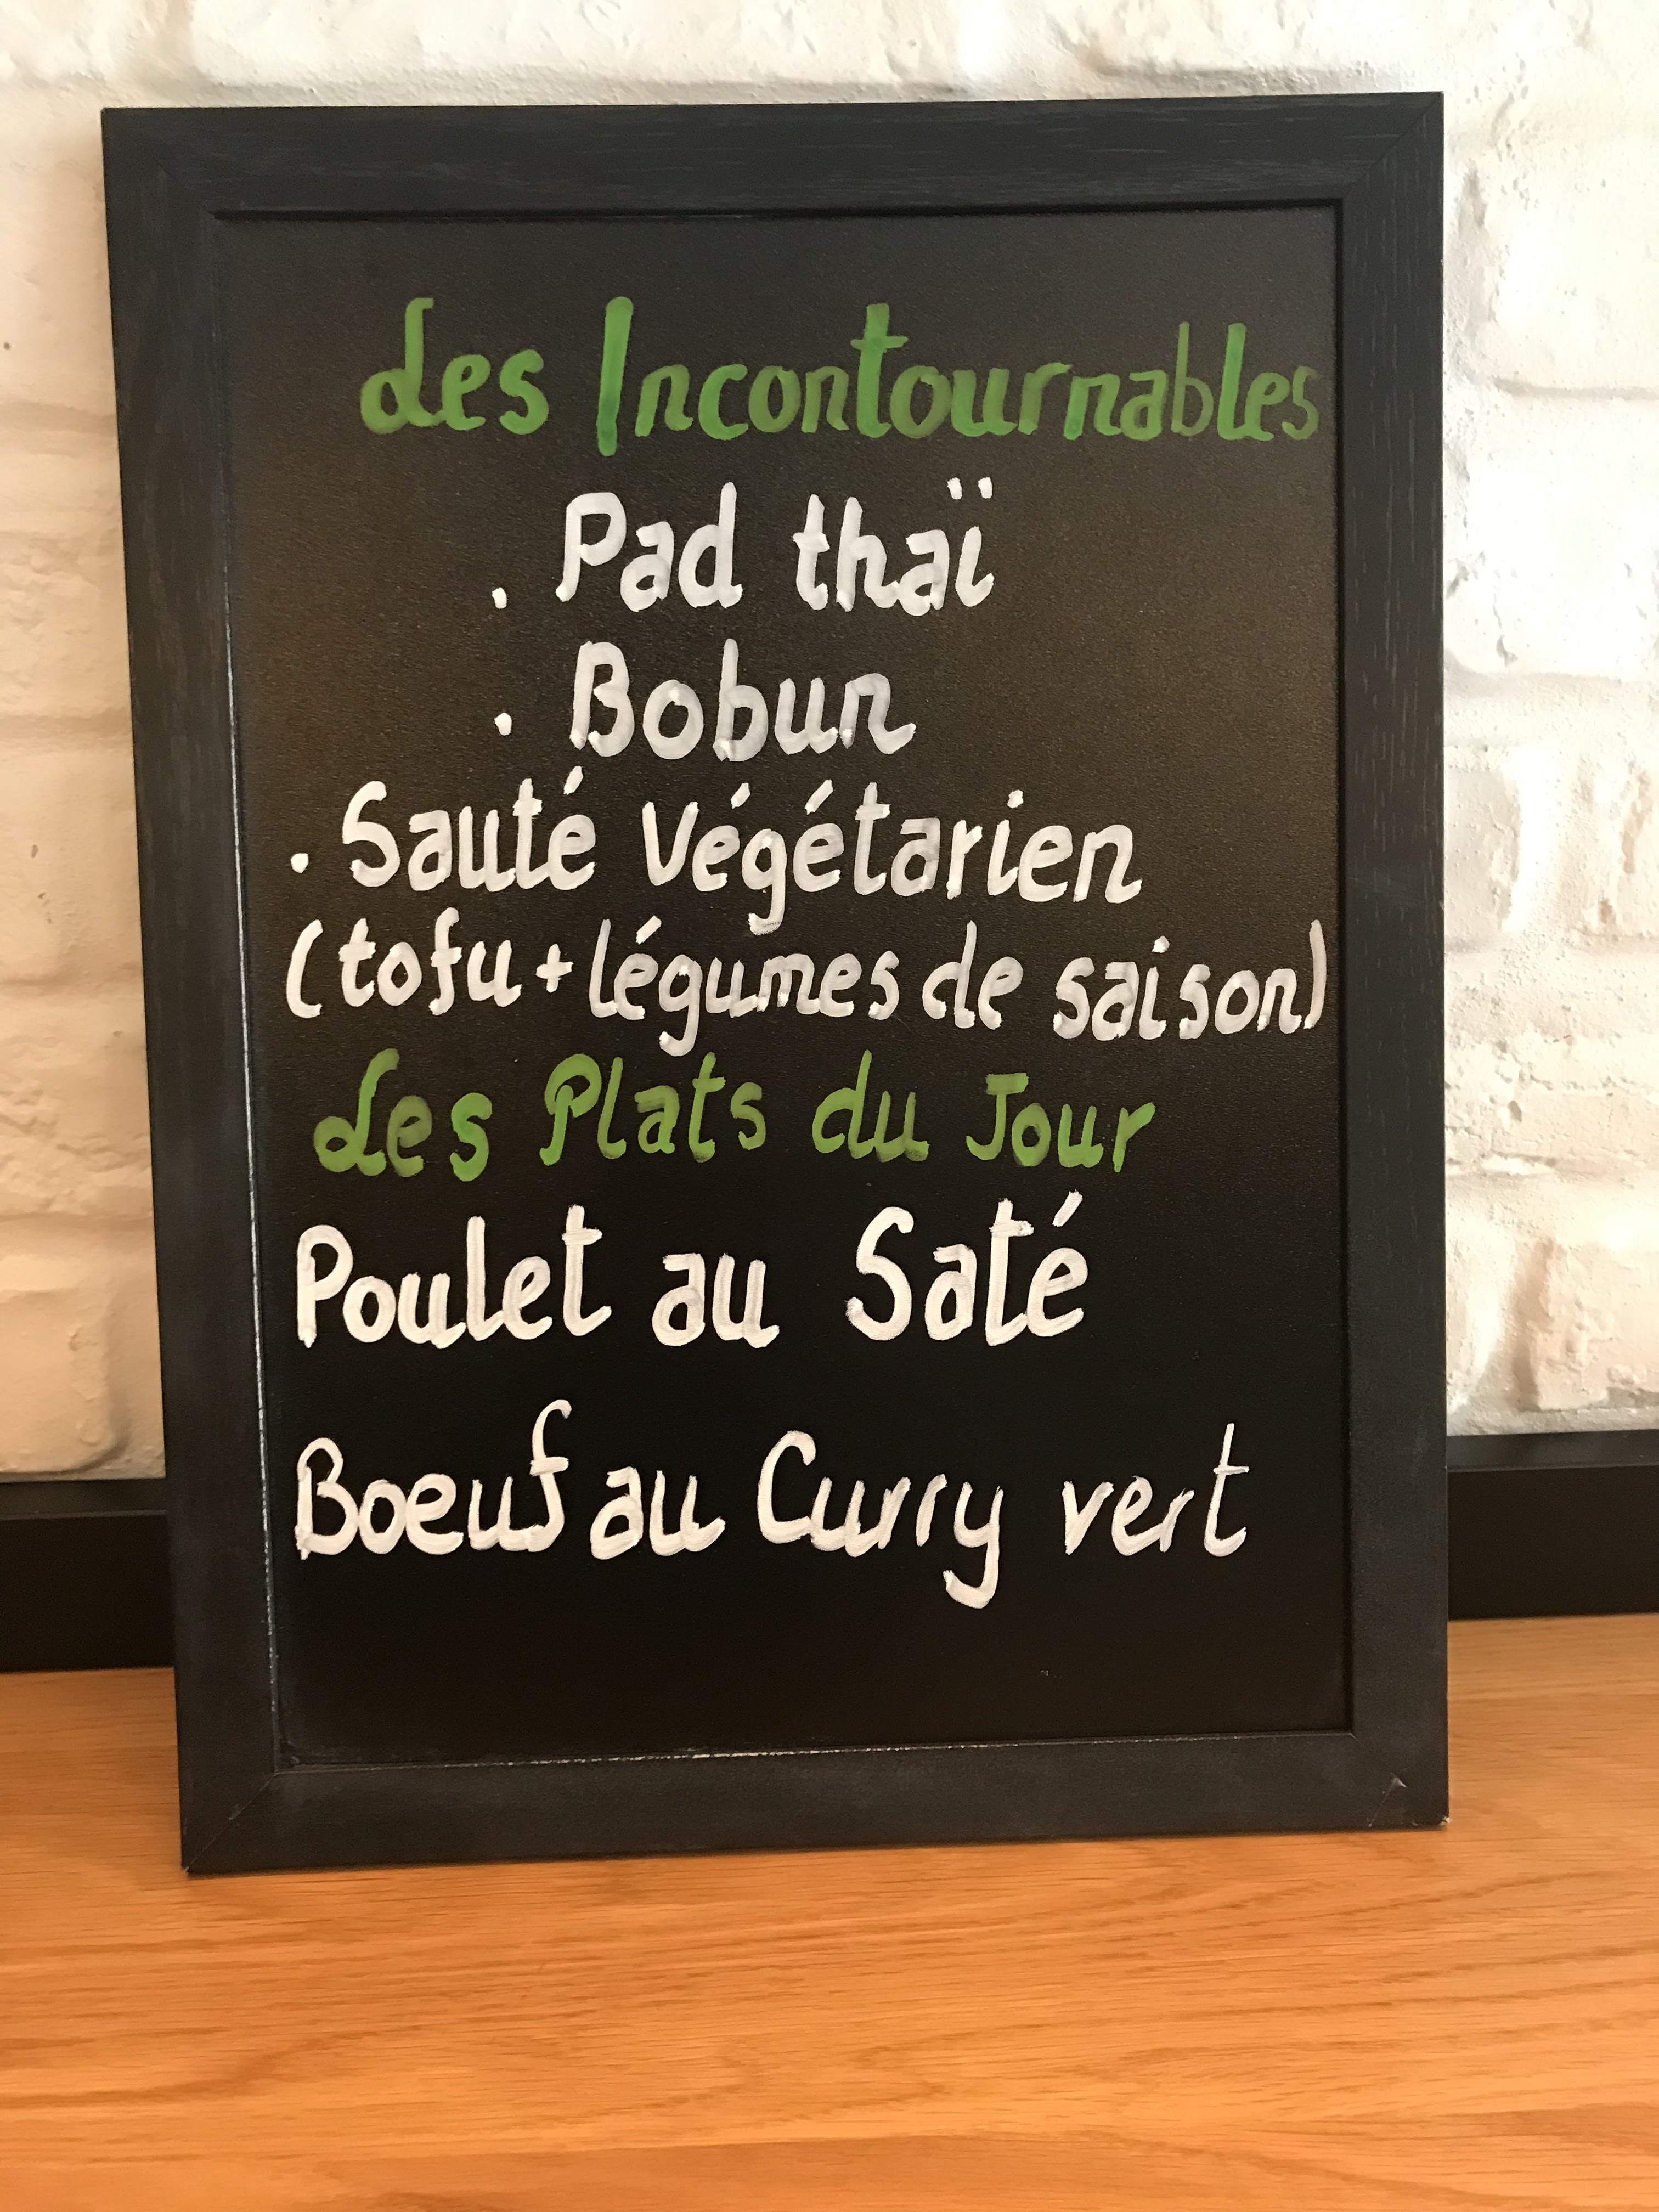 Les Incontournables
. Pad thaï
. Bobun
. Sauté Végétarien
(tofu+légumes de saison)
Les Plats du Jour
Poulet au Saté
Boeuf au Curry vert